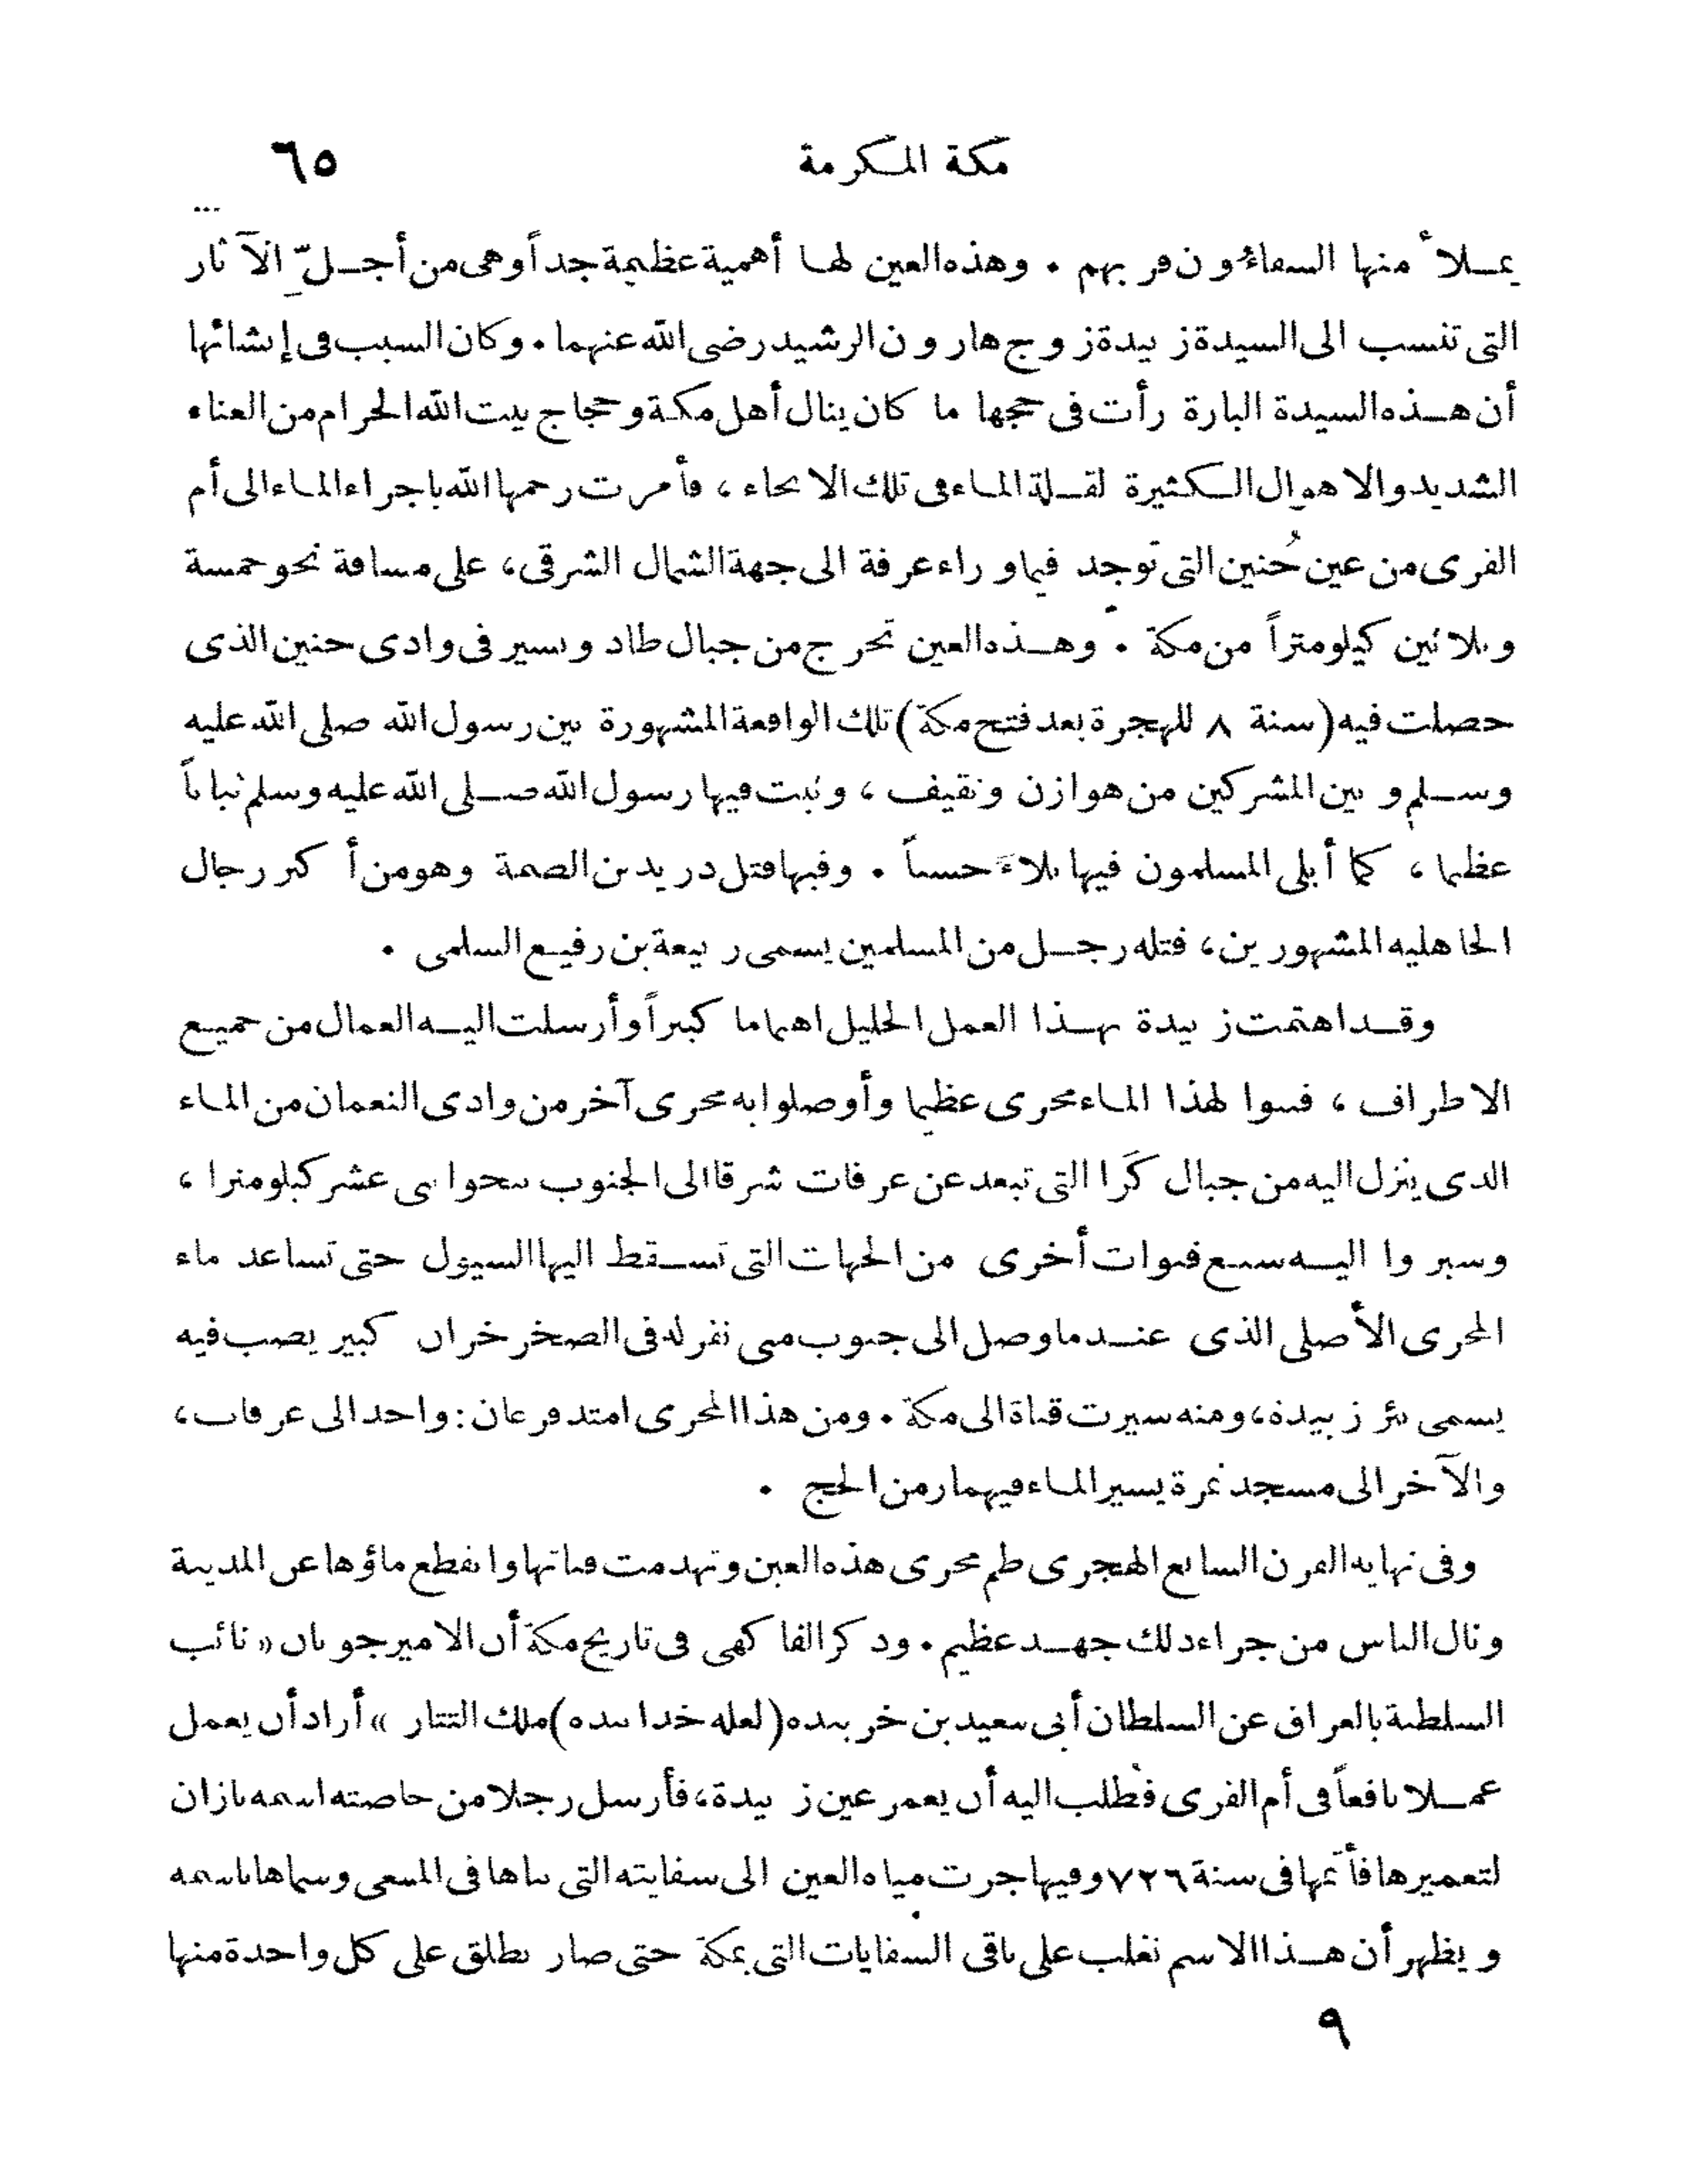 مكة المكرمة ٦٥
يملأ منها السقاؤون قربهم . وهذه العين لها أهمية عظيمة جداً وهى من أجلّ الآثار
التى تنسب الى السيدة زبيدة زوج هارون الرشيد رضى الله عنهما . وكان السبب فى إنشائها
أن هذه السيدة البارة رأت فى حجها ما كان ينال أهل مكة وحجاج بيت الله الحرام من العناء
الشديد والاهوال الكثيرة لقلة الماء فى تلك الانحاء ، فأمرت رحمها الله باجراء الماء الى أم
القرى من عين حُنين التى توجد فيما وراء عرفة الى جهة الشمال الشرقى ، على مسافة نحو خمسة
وثلاثين كيلومتراً من مكة . وهذه العين تخرج من جبال طاد وتسير فى وادى حنين الذى
حصلت فيه (سنة ٨ للهجرة بعد فتح مكة) تلك الواقعة المشهورة بين رسول الله صلى الله عليه
وسلم وبين المشركين من هوازن وثقيف ، وثبت فيها رسول الله صلى الله عليه وسلم ثباتاً
عظيما ، كما أبلى المسلمون فيها بلاءً حسناً . وفيها قتل دريد بن الصمة وهو من أكبر رجال
الجاهلية المشهورين ، قتله رجل من المسلمين يسمى ربيعة بن رفيع السلمى .
وقد اهتمت زبيدة بهذا العمل الجليل اهتماما كبيراً وأرسلت اليه العمال من جميع
الاطراف ، فبنوا لهذا الماء مجرى عظيما وأوصلوا به مجرى آخر من وادى النعمان من الماء
الذى ينزل اليه من جبال كَرا التى تبعد عن عرفات شرقا الى الجنوب بنحو اثنى عشر كيلومترا ،
وسيروا اليه سبع قنوات أخرى من الجهات التى تسقط اليها السيول حتى تساعد ماء
المجرى الأصلى الذى عندما وصل الى جنوب منى نقر له فى الصخر خزان كبير يصب فيه
يسمى بئر زبيدة ، ومنه سيرت قناة الى مكة . ومن هذا المجرى امتد فرعان : واحد الى عرفات ،
والآخر الى مسجد نمرة يسير الماء فيهما زمن الحج .
وفى نهاية القرن السابع الهجرى طم مجرى هذه العين وتهدمت قناتها وانقطع ماؤها عن المدينة
ونال الناس من جراء ذلك جهد عظيم . وذكر الفاكهى فى تاريخ مكة أن الامير جوبان « نائب
السلطنة بالعراق عن السلطان أبى سعيد بن خربنده (لعله خدابنده) ملك التتار » أراد أن يعمل
عملا نافعاً فى أم القرى فطلب اليه أن يعمر عين زبيدة ، فأرسل رجلا من خاصته اسمه بازان
لتعميرها فأتمها فى سنة ٧٢٦ وفيها جرت مياه العين الى سقايته التى بناها فى المسعى وسماها باسمه
ويظهر أن هذا الاسم تغلب على باقى السقايات التى بمكة حتى صار يطلق على كل واحدة منها
٩